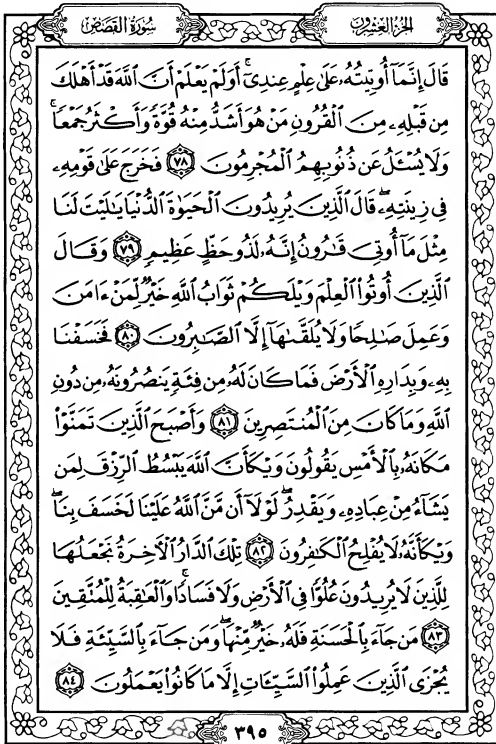 الجزء العشرون
سورة القصص
قَالَ إِنَّمَآ أُوتِيتُهُۥ عَلَىٰ عِلْمٍ عِندِىٓ ۚ أَوَلَمْ يَعْلَمْ أَنَّ ٱللَّهَ قَدْ أَهْلَكَ
مِن قَبْلِهِۦ مِنَ ٱلْقُرُونِ مَنْ هُوَ أَشَدُّ مِنْهُ قُوَّةً وَأَكْثَرُ جَمْعًا ۚ
وَلَا يُسْـَٔلُ عَن ذُنُوبِهِمُ ٱلْمُجْرِمُونَ ٧٨ فَخَرَجَ عَلَىٰ قَوْمِهِۦ
فِى زِينَتِهِۦ ۖ قَالَ ٱلَّذِينَ يُرِيدُونَ ٱلْحَيَوٰةَ ٱلدُّنْيَا يَـٰلَيْتَ لَنَا
مِثْلَ مَآ أُوتِىَ قَـٰرُونُ إِنَّهُۥ لَذُو حَظٍّ عَظِيمٍ ٧٩ وَقَالَ
ٱلَّذِينَ أُوتُوا۟ ٱلْعِلْمَ وَيْلَكُمْ ثَوَابُ ٱللَّهِ خَيْرٌ لِّمَنْ ءَامَنَ
وَعَمِلَ صَـٰلِحًا وَلَا يُلَقَّىٰهَآ إِلَّا ٱلصَّـٰبِرُونَ ٨٠ فَخَسَفْنَا
بِهِۦ وَبِدَارِهِ ٱلْأَرْضَ فَمَا كَانَ لَهُۥ مِن فِئَةٍ يَنصُرُونَهُۥ مِن دُونِ
ٱللَّهِ وَمَا كَانَ مِنَ ٱلْمُنتَصِرِينَ ٨١ وَأَصْبَحَ ٱلَّذِينَ تَمَنَّوْا۟
مَكَانَهُۥ بِٱلْأَمْسِ يَقُولُونَ وَيْكَأَنَّ ٱللَّهَ يَبْسُطُ ٱلرِّزْقَ لِمَن
يَشَآءُ مِنْ عِبَادِهِۦ وَيَقْدِرُ ۖ لَوْلَآ أَن مَّنَّ ٱللَّهُ عَلَيْنَا لَخَسَفَ بِنَا ۖ
وَيْكَأَنَّهُۥ لَا يُفْلِحُ ٱلْكَـٰفِرُونَ ٨٢ تِلْكَ ٱلدَّارُ ٱلْـَٔاخِرَةُ نَجْعَلُهَا
لِلَّذِينَ لَا يُرِيدُونَ عُلُوًّا فِى ٱلْأَرْضِ وَلَا فَسَادًا ۚ وَٱلْعَـٰقِبَةُ لِلْمُتَّقِينَ
٨٣ مَن جَآءَ بِٱلْحَسَنَةِ فَلَهُۥ خَيْرٌ مِّنْهَا ۖ وَمَن جَآءَ بِٱلسَّيِّئَةِ فَلَا
يُجْزَى ٱلَّذِينَ عَمِلُوا۟ ٱلسَّيِّـَٔاتِ إِلَّا مَا كَانُوا۟ يَعْمَلُونَ ٨٤
٣٩٥